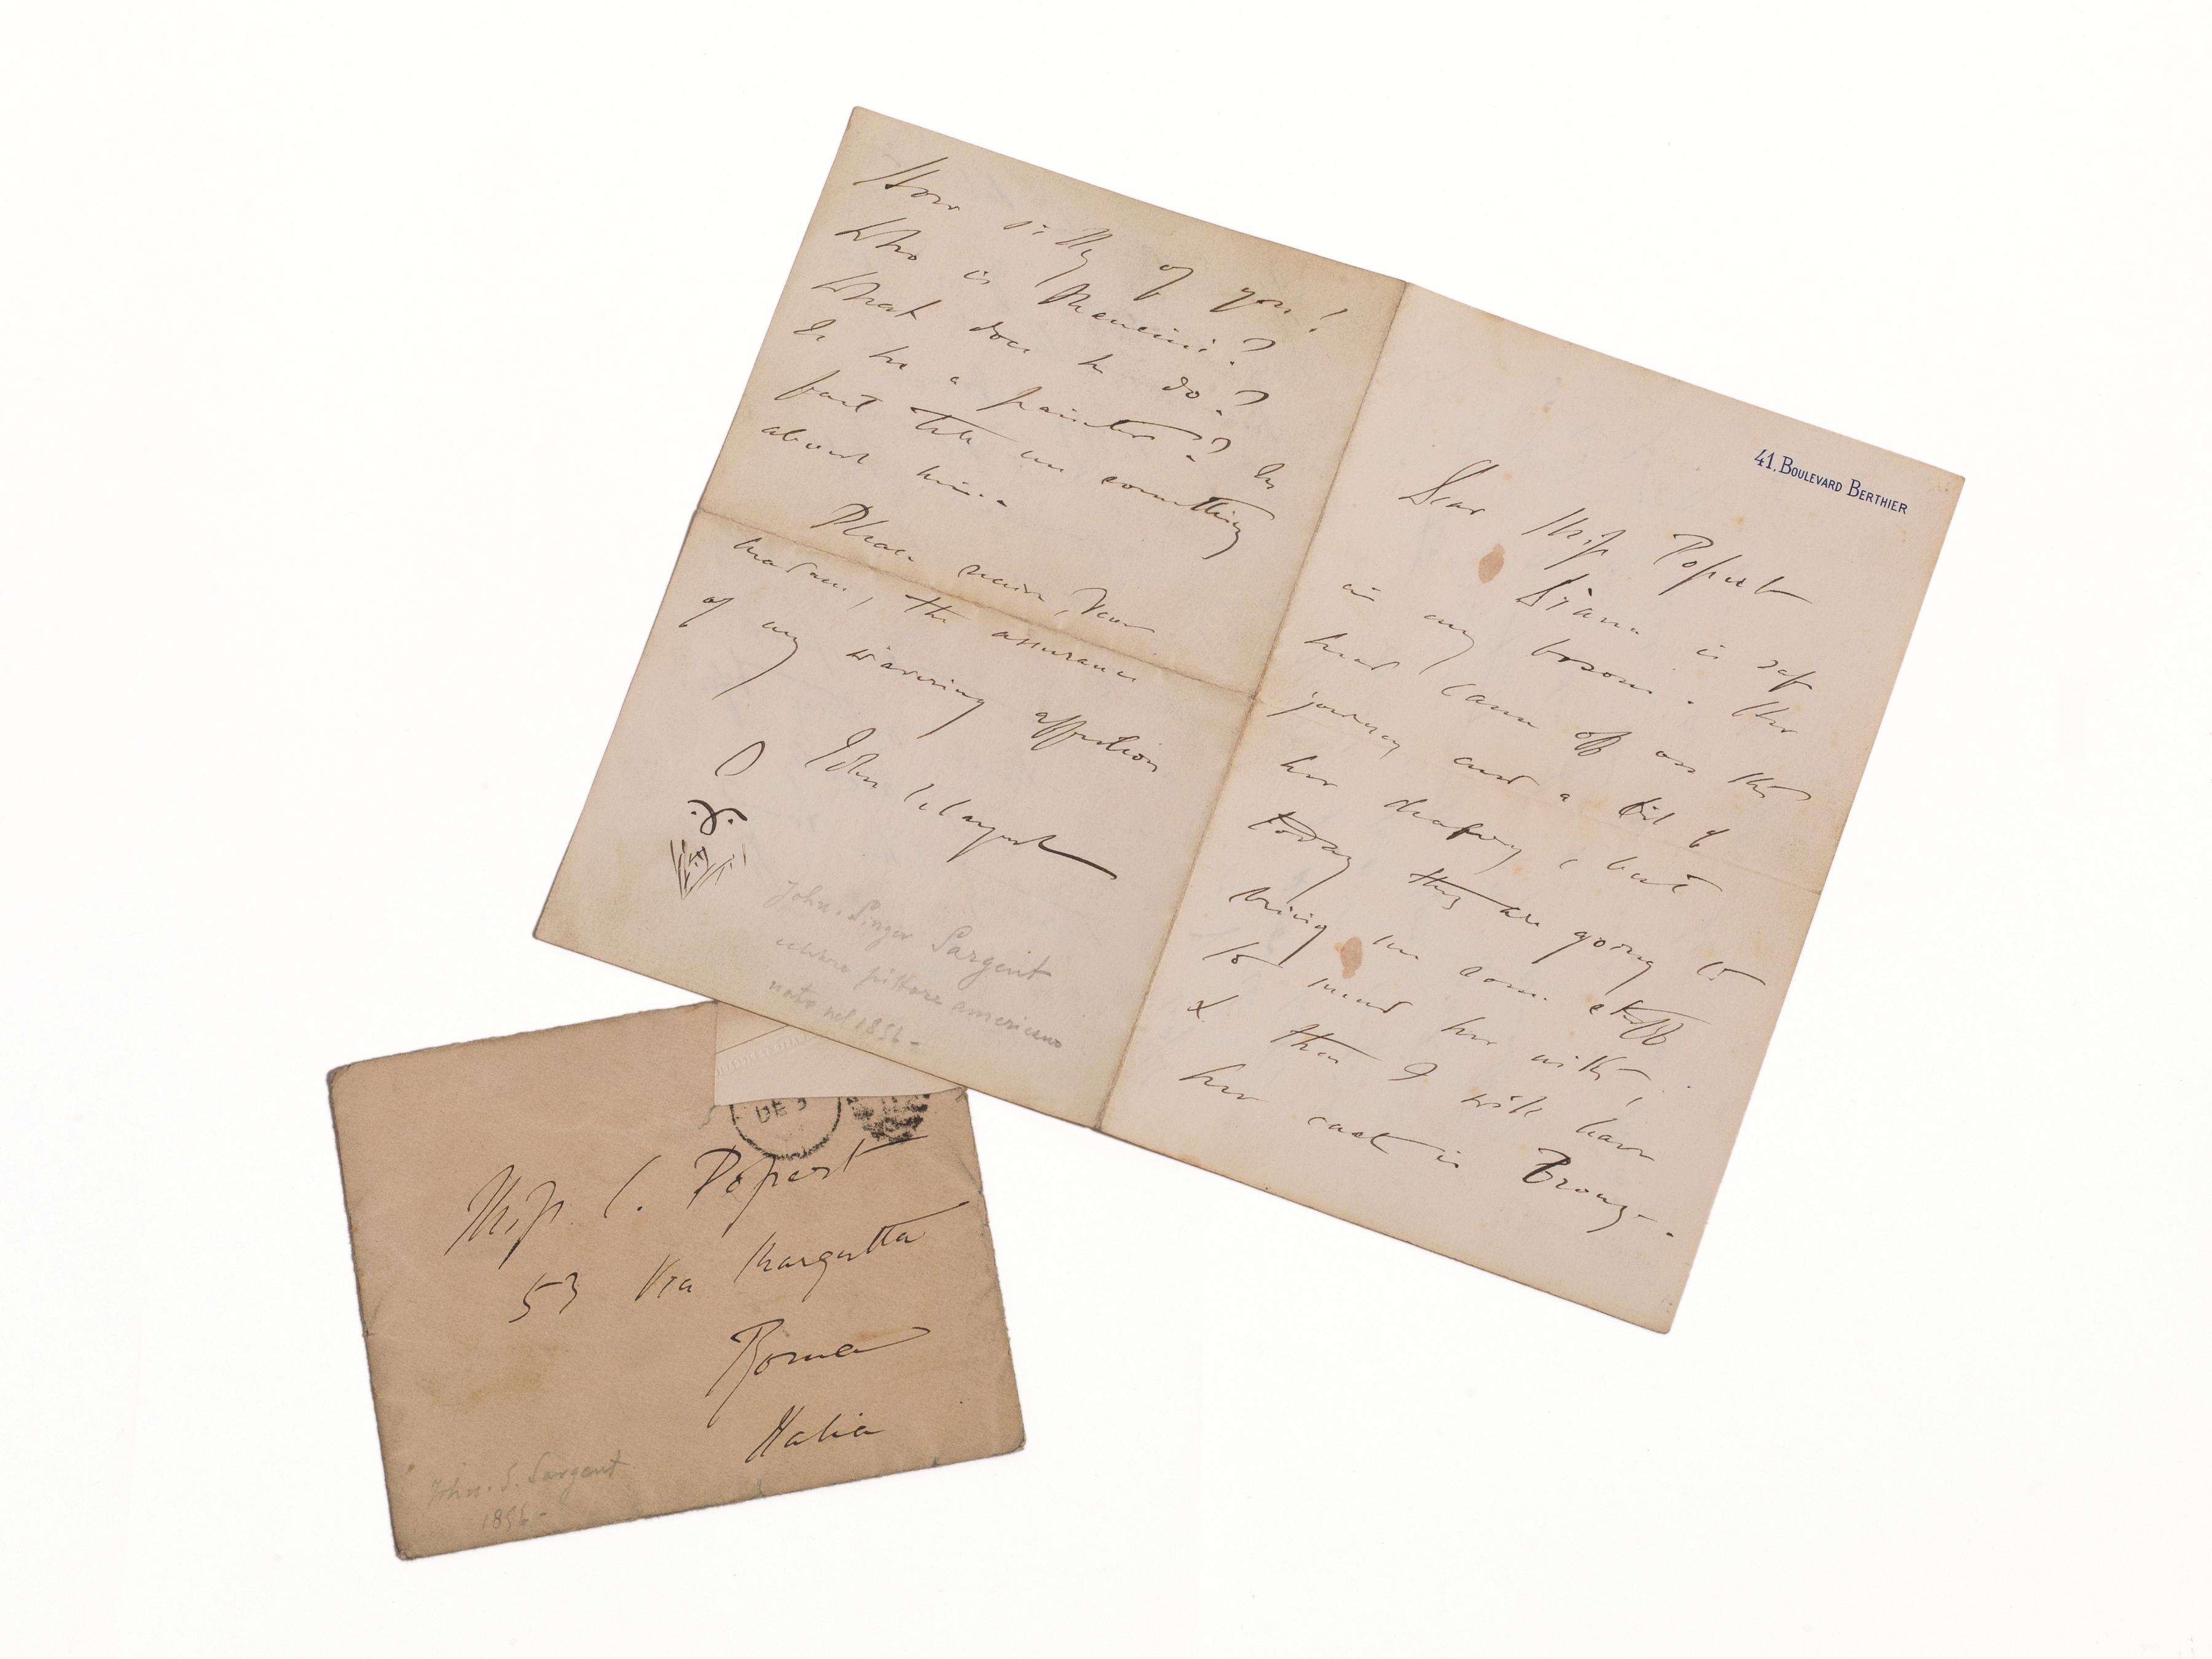 41, BOULEVARD BERTHIER
Dear Miss Popert
Diana is safe
in my bosom. Her
head came off on the
journey and a bit of
her drapery, but
today they are going to
bring me some stuff
to mend her with,
& then I will have
her cast in Bronze.
How silly of you!
Who is Mancini?
What does he do?
Is he a painter? In
fact tell me something
about him.
Please receive, Dear
Madam, the assurance
of my wavering affection
John S. Sargent
John. Singer Sargent
celebre pittore americano
nato nel 1856 -
DEC
Miss C. Popert
53 Via Margutta
Roma
Italia
John. S. Sargent
1856 -